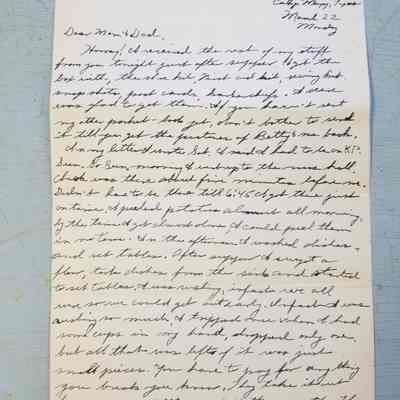 Camp Maxey, Texas
March 22
Monday
Dear Mom & Dad,
Hooray! I received the rest of my stuff
from you tonight just after supper. I got the
box with, the shoe kit, first aid kit, sewing kit
snapshots, post cards, hankerchiefs. I sure
was glad to get them. If you haven't sent
my other pocket book yet, don't bother to send
it till you get the pictures of Betty & me back.
In my letter I wrote Sat. I said I had to be on K.P.
Sun. So Sun. morning I went up to the mess hall.
Chuck was there about five minutes before me.
Didn't have to be there till 6:45 I got there just
on time. I peeled potatoes almost all morning.
by the time I got almost done, I could peel them
in no time. In the afternoon I washed dishes
and set tables. After supper I swept a
floor, took dishes from the sink and started
to set tables. I was rushing, infact we all
were, so we could get out early. Infact I was
rushing so much, I tripped once when I had
some cups in my hand, dropped only one,
but all that was left of it was just
small pieces. You have to pay for anything
you break you know. They take it out